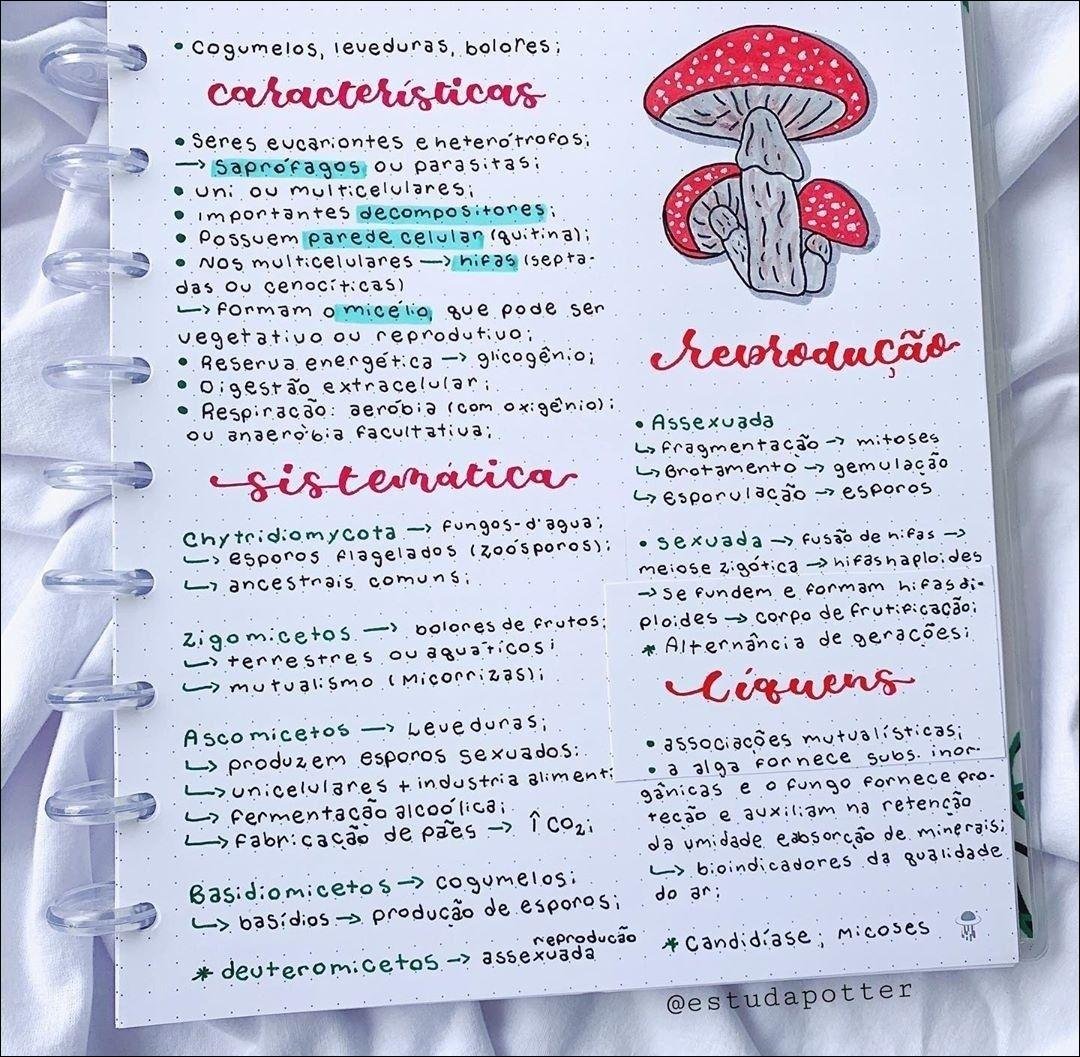 • cogumelos, leveduras, bolores;
características
• Seres eucariontes e heterótrofos;
→ Saprófagos ou parasitas;
• uni ou multicelulares;
• importantes decompositores;
• Possuem parede celular (quitina);
• Nos multicelulares → hifas (septa-
das ou cenocíticas)
↳ formam o micélio, que pode ser
vegetativo ou reprodutivo;
• Reserva energética → glicogênio;
• Digestão extracelular;
• Respiração: aeróbia (com oxigênio);
ou anaeróbia facultativa;
sistemática
Chytridiomycota → fungos-d'agua;
↳ esporos flagelados (zoósporos);
↳ ancestrais comuns;
Zigomicetos → bolores de frutos;
↳ terrestres ou aquaticos;
↳ mutualismo (Micorrizas);
Ascomicetos → Leveduras;
↳ produzem esporos sexuados:
↳ unicelulares + industria alimenti
↳ fermentação alcoólica;
↳ fabricação de pães → ↑CO₂;
Basidiomicetos → cogumelos;
↳ basídios → produção de esporos;
* deuteromicetos → reprodução
assexuada
reprodução
• Assexuada
↳ fragmentação → mitoses
↳ Brotamento → gemulação
↳ esporulação → esporos
• sexuada → fusão de hifas →
meiose zigótica → hifas haploides
→ se fundem e formam hifas di-
ploides → corpo de frutificação;
* Alternância de gerações;
Líquens
• associações mutualísticas;
• a alga fornece subs. inor-
gânicas e o fungo fornece pro-
teção e auxiliam na retenção
da umidade e absorção de minerais;
↳ bioindicadores da qualidade
do ar;
* Candidíase; Micoses
@estudapotter